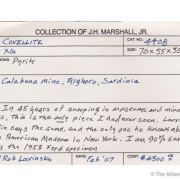 COLLECTION OF J.H. MARSHALL, JR.
COVELLITE CAT. NO. 4408
Xls SIZE: 70x55x35
Pyrite
Calabona Mine, Alghero, Sardinia
In 45 years of snooping in museums and mine
s, this is the only piece I had ever seen. Larr
in says the same, and the only one he knows abou
American Museum in New York. I am 90% sur
s the 1958 Ford specimen
Rob Lavinsky DATE Feb '07 COST $4500